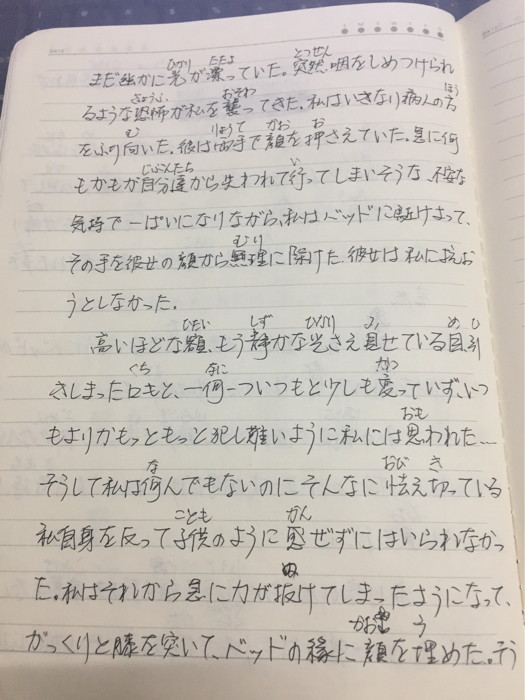 ひかり ただよ とつせん
まだ幽かに光が漂っていた。突然、咽をしめつけられ
きょうふ おそわ ほう
るような恐怖が私を襲ってきた。私はいきなり病人の方
む りょうて かお お
をふり向いた。彼は両手で顔を押さえていた。急に何
じぶんたち い
もかもが自分達から失われて行ってしまいそうな、不安な
気持で一ぱいになりながら、私はベッドに駈けよって、
むり
その手を彼女の顔から無理に除けた。彼女は私に抗お
うとしなかった。
ひたい しず ひかり み め ひ
高いほどな額、もう静かな光さえ見せている目、引
くち なに かわ
きしまった口もと、一何一ついつもと少しも変っていず、いつ
おも
もよりかもっともっと犯し難いように私には思われた…
な おび き
そうして私は何んでもないのにそんなに怯え切っている
ことも かん
私自身を反って子供のように感ぜずにはいられなかっ
ぬ
た。私はそれから急に力が抜けてしまったようになって、
かお う
がっくりと膝を突いて、ベッドの縁に顔を埋めた。そう